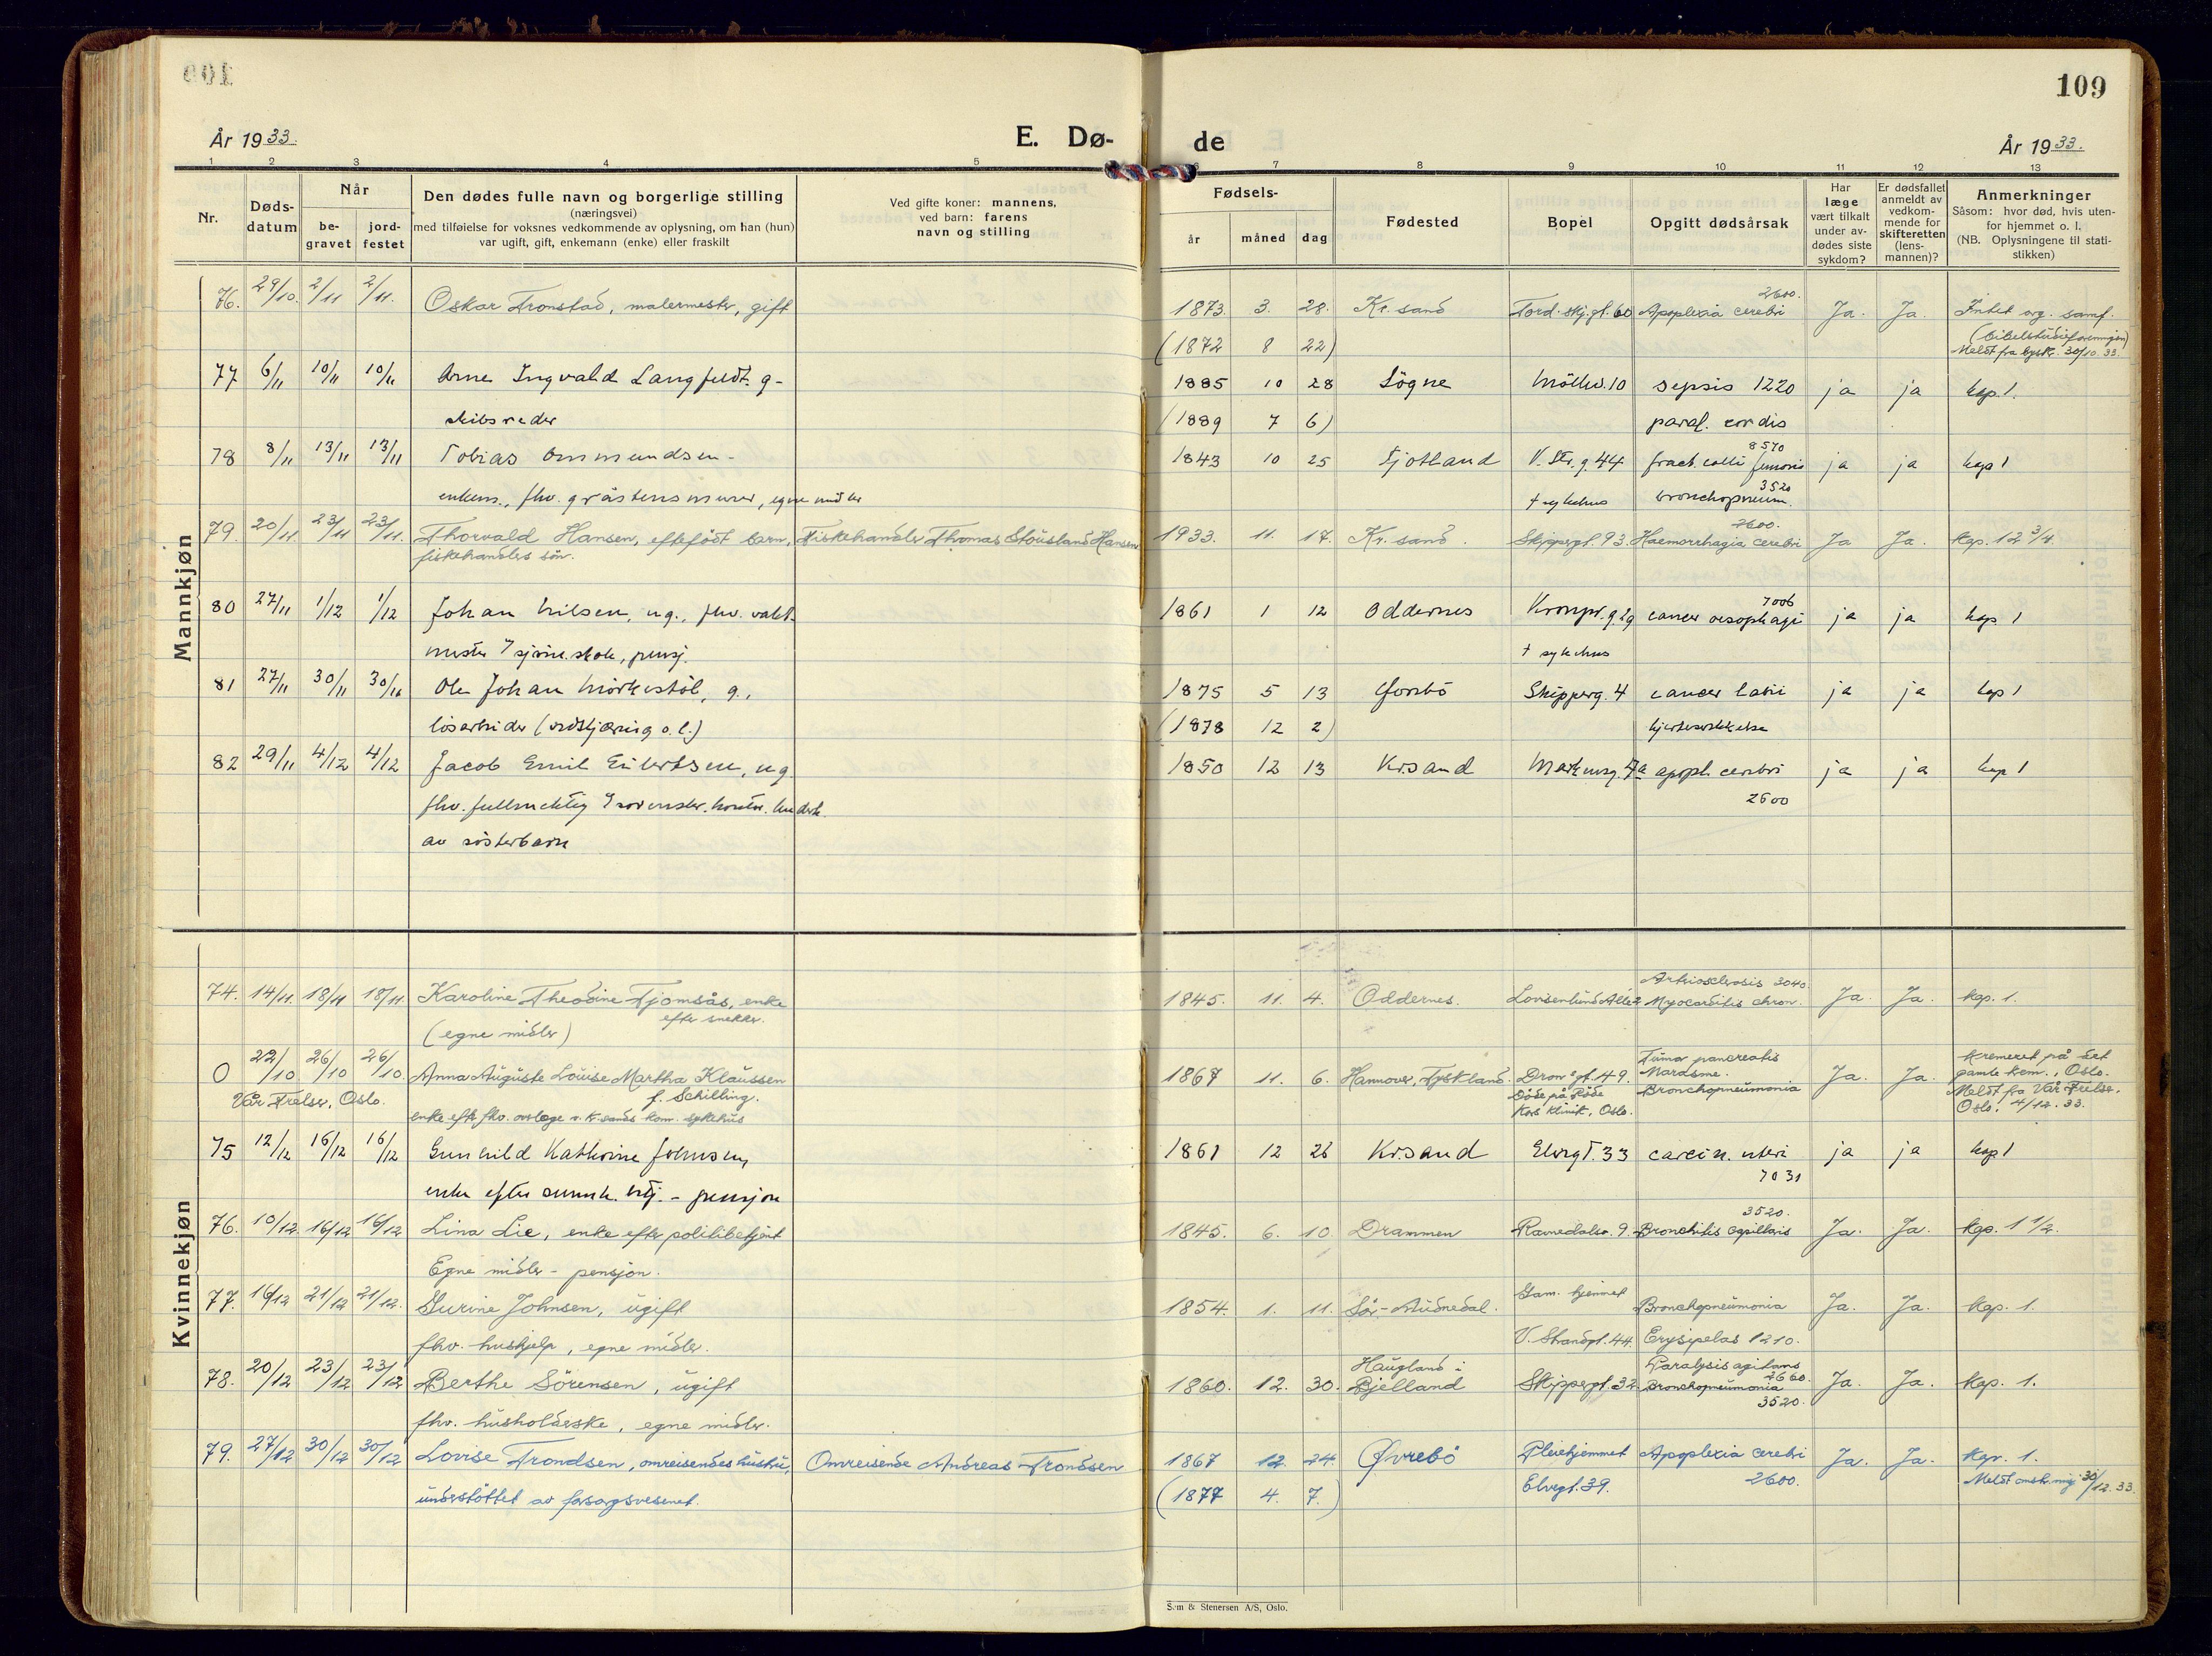 109
År 1933. E. Dø-de År 1933.
1 2 3 4 5 6 7 8 9 10 11 12 13
Nr.
Døds-datum
Når
be-gravet
jord-festet
Den dødes fulle navn og borgerlige stilling
(næringsvei)
med tilføielse for voksnes vedkommende av oplysning, om han (hun)
var ugift, gift, enkemann (enke) eller fraskilt
Ved gifte koner: mannens,
ved barn: farens
navn og stilling
Fødsels-
år måned dag
Fødested
Bopel
Opgitt dødsårsak
Har læge vært tilkalt under av-dødes siste sykdom?
Er dødsfallet anmeldt av vedkom-mende for skifteretten (lens-mannen)?
Anmerkninger
Såsom: hvor død, hvis uten-
for hjemmet o. l.
(NB. Oplysningene til stati-
stikken)
Mannkjøn
76. 29/10. 2/11 2/11. Oskar Tronstad, malermester, gift 1873. 3. 28. Kr.sand Tord.skj.gt. 60 Apoplexia cerebri 2600. Ja. Ja. Intet org. samf.
(1872 8 22) (bibelstudieforeningen)
Meldt fra byskr. 30/10. 33.
77 6/11 10/11 10/11 Arne Ingvald Langfeldt. g- 1885 10 28 Søgne Möllev.10 sepsis 1220 ja ja kap. 1.
skibsreder (1889 7 6) paral. cordis
78 8/11 13/11 13/11 Tobias Ommundsen- 1843 10 25 Fjotland V. Str.g.44 fract. colli femoris 8570 ja ja kap 1
enkem., fhv. gråstensmurer, egne midler † sykehus bronchopneum. 3520
79. 20/11. 23/11 23/11. Thorvald Hansen, efterfödt barn, Fiskehandler Thomas Stöusland Hansen 1933. 11. 17. Kr.sand. Skippergt. 93. Haemorrhagia cerebri 2600. Ja Ja. Kap. 12 3/4.
fiskehandlers sön.
80 27/11 1/12 1/12 Johan Nilsen, ug., fhv. vakt- 1861 1 12 Oddernes Kronpr.g.29 cancer oesophagi 7006 ja ja kap. 1
mester sjöm.skole, pensj. † sykehus
81 27/11 30/11 30/11 Ole Johan Mörkestöl, g., 1875 5 13 Grebö Skipperg. 4 cancer labii ja ja kap 1
lösarbeider (vedskjæring o.l.) (1878 12 2)
82 29/11 4/12 4/12 Jacob Emil Eilertsen, ug 1850 12 13 Kr.sand Markensg. 7a apopl. cerebri ja ja kap 1
fhv. fullmektig sorenskr. kontor. 2600
av sösterbarn
Kvinnekjøn
74. 14/11. 18/11 18/11. Karoline Theodine Fjomsås, enke efter snekker. 1845. 11. 4. Oddernes. Lovisenlund Allé 2 Arteriosclerosis 3040. Myocarditis chron. Ja. Ja. Kap. 1.
(egne midler)
0 22/10 26/10 26/10. Anna Auguste Louise Martha Klaussen 1867 11. 6. Hannover, Tyskland. Dron°gt. 49. Tumor pancreatis Marasme. Bronchopneumonia Ja. Ja. Kremeret på det gamle krem., Oslo.
Vår Frelser, Oslo. f. Schilling. Döde på Röde Meldt fra Vår Frelser.
enke efter fhv. overlæge v. Kr.sands kom. sykehus Kors klinik, Oslo. Oslo, 4/12. 33.
75 12/12 16/12 16/12 Gunhild Kathrine Johnsen, 1861 12 26 Kr.sand Elvegt. 33 carcin. uteri ja ja kap 1
enke efter - pensjon 7031
76. 10/12. 16/12 16/12. Lina Lie, enke efter politibetjent 1845. 6. 10. Drammen Ravnedalsv. 9. Bronchitis capillaris 3520. Ja. Ja. Kap. 1 1/2.
Egne midler - pensjon.
77. 16/12 21/12 21/12. Surine Johnsen, ugift 1854. 1. 11. Sör-Audnedal. Gam. hjemmet Bronchopneumonia Ja. Ja. Kap. 1.
fhv. hushjelp, egne midler. V. Strandgt. 44. Erysipelas 1210.
78. 20/12 23/12 23/12 Berthe Sörensen, ugift 1860. 12. 30. Haugland i Bjelland Skippergt. 32. Paralysis agitans 2660. Bronchopneumonia 3520. Ja. Ja. Kap. 1.
fhv. husholderske, egne midler.
79. 27/12 30/12 30/12 Lovise Trondsen, omreisendes hustru, Omreisende Andreas Trondsen 1867 12. 24. Øvrebö Pleiehjemmet Apoplexia cerebri Ja. Ja. Kap. 1.
understöttet av forsorgsvesenet. (1877 4. 7.) Elvegt. 39. 2600. 30/12. 33.
Sem & Stenersen A/S, Oslo.